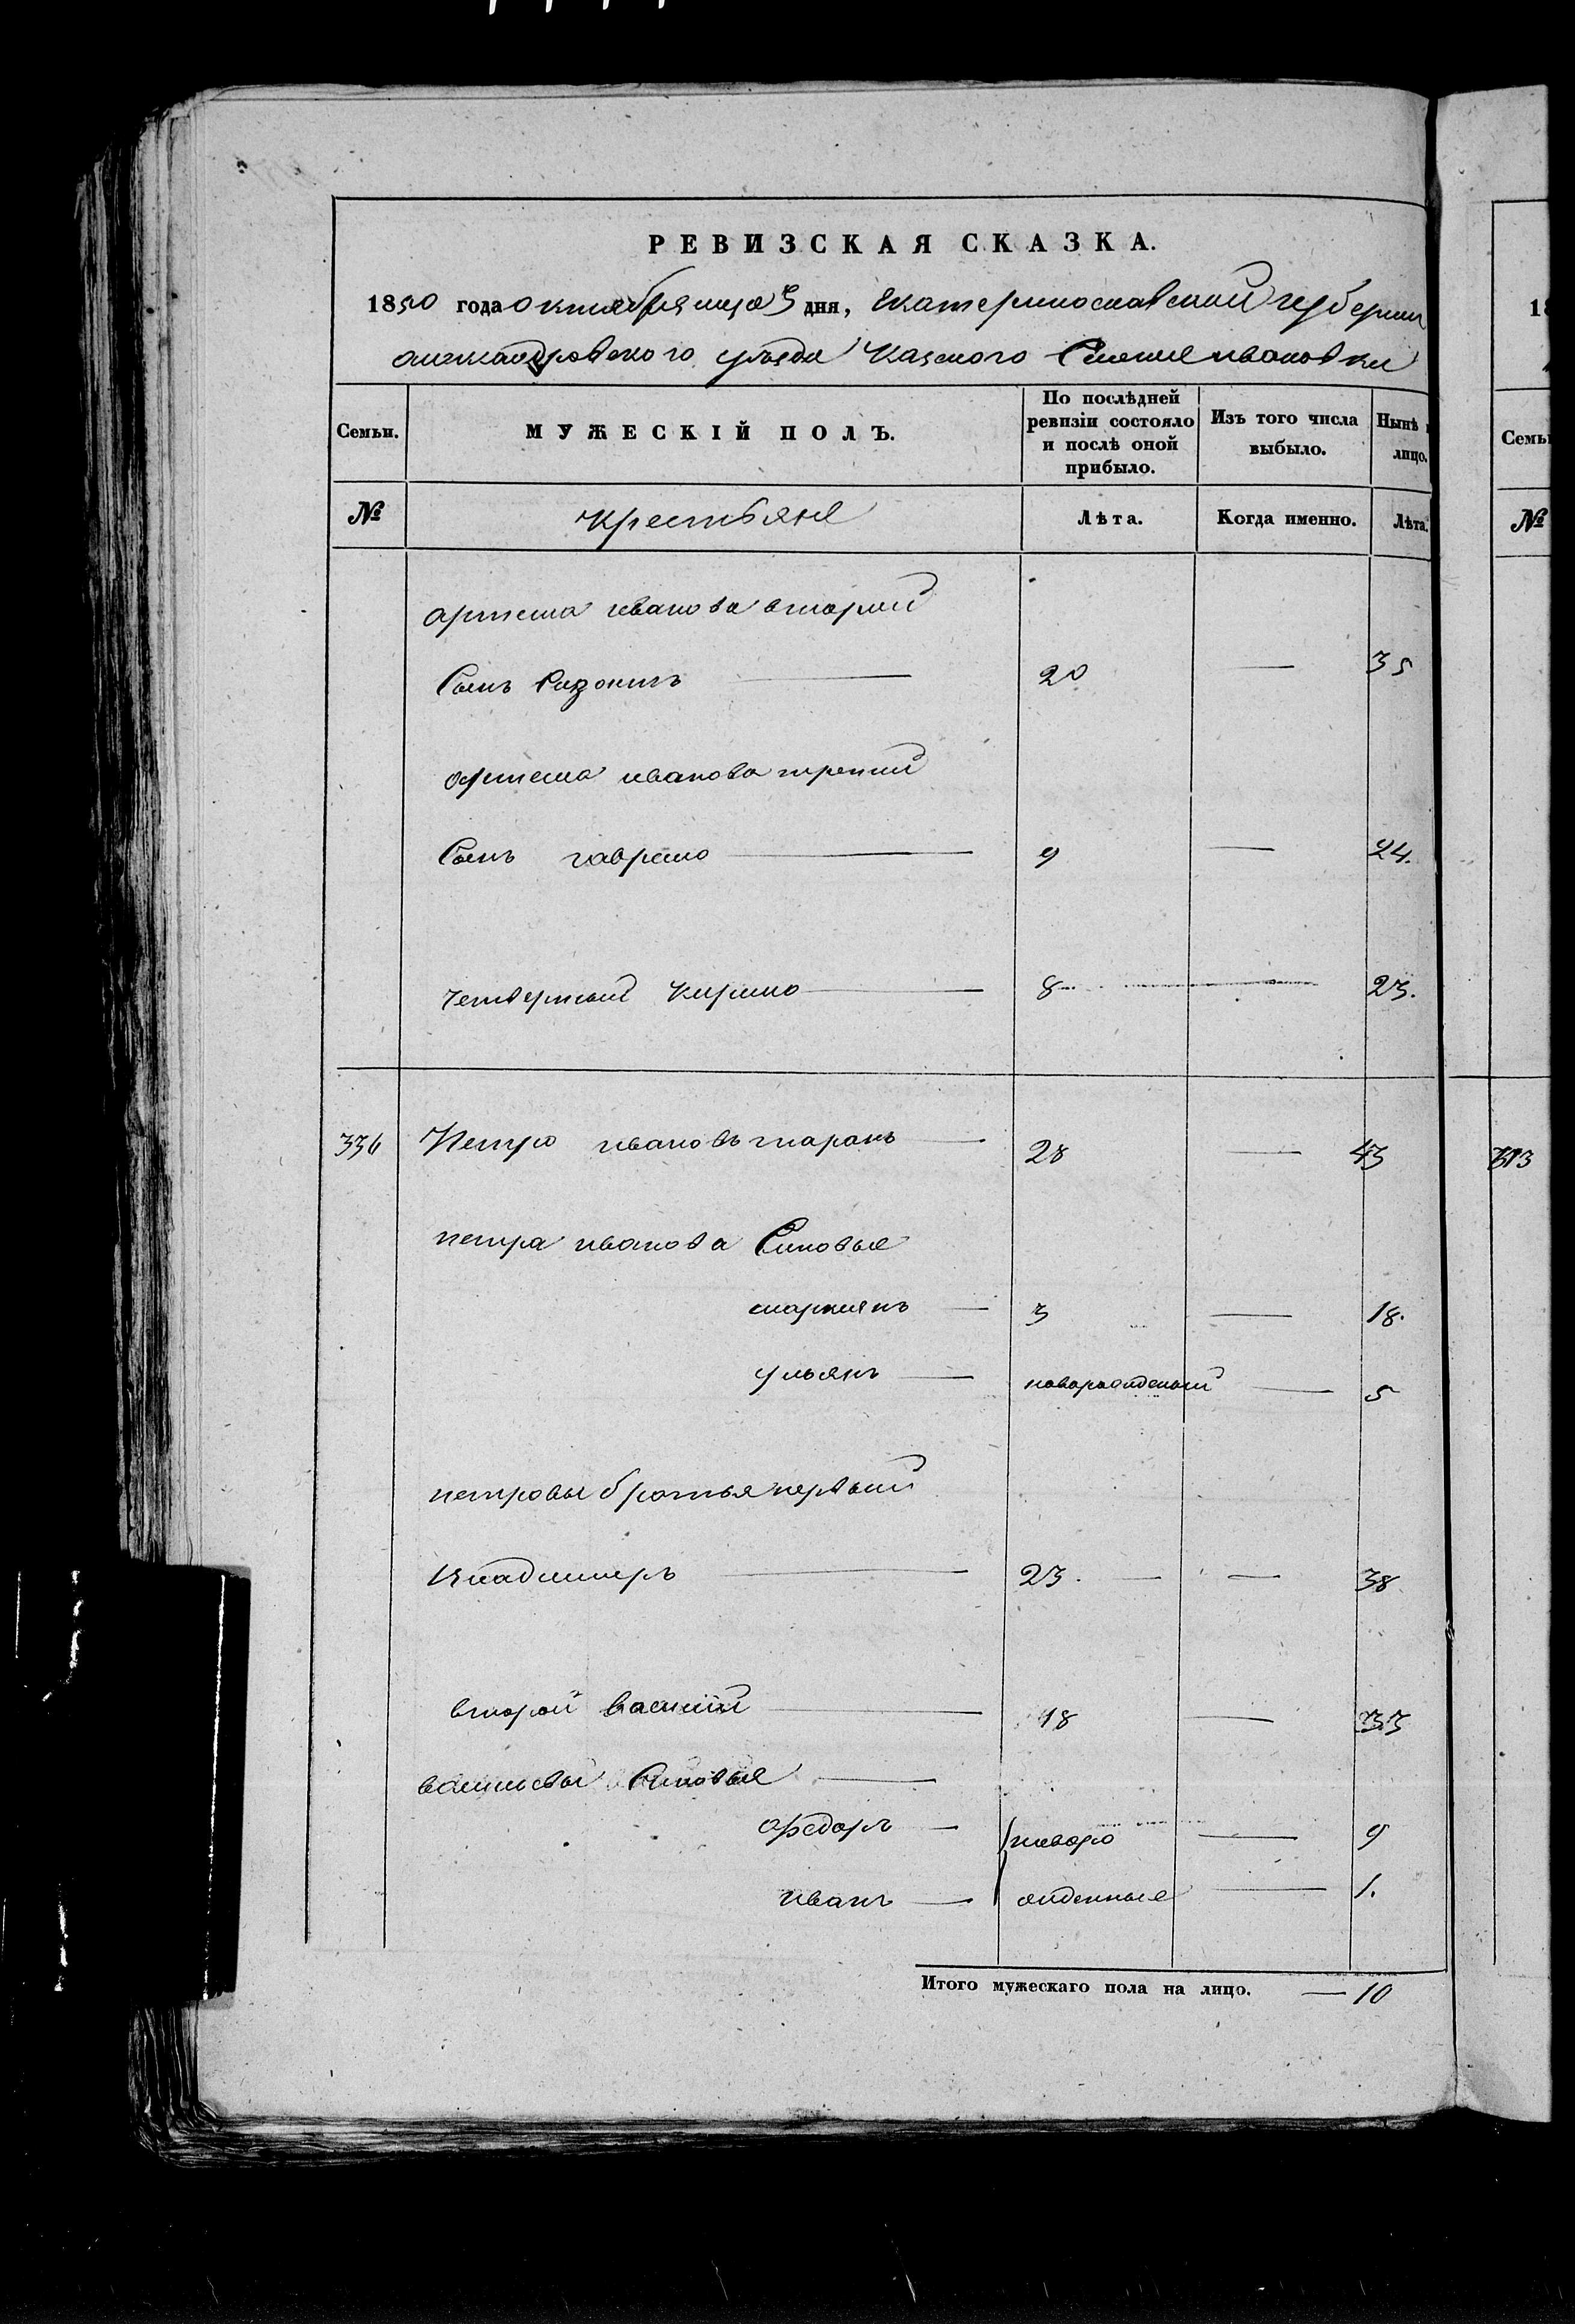 РЕВИЗСКАЯ СКАЗКА.
1850 года октября мца 5 дня, Екатеринославской губернии
александровского уезда Казеного Селения ивановки
Семьи.
МУЖЕСКІЙ ПОЛЪ.
По послѣдней ревизіи состояло и послѣ оной прибыло.
Изъ того числа выбыло.
Нынѣ
лицо.
№
крестьяне
Лѣта.
Когда именно.
Лѣта.
артема иванова вторый
Сынъ Созонтъ 20 — 35
артема иванова третий
Сынъ гаврило 9 — 24.
четвертый кирило 8 — 23.
336 Петро ивановъ таранъ 28 — 43
петра иванова Синовые
маркиянъ — 3 — 18.
ульянъ — новорожденый — 5
петровы братья первый
Владимиръ 23. — 38
второй василий 18 — 33
васильевы Синовые
федоръ — новоро — 9
иванъ — жденные — 1.
Итого мужескаго пола на лицо. — 10
18
Семьи
№
313